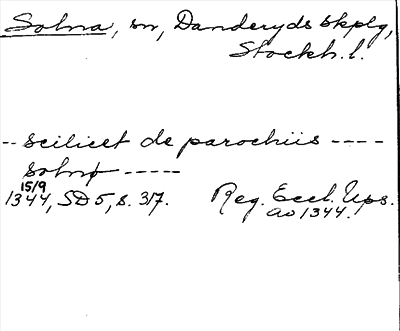 Solna, sn, Danderyds skplg,
Stockh. l.
-- scilicet de parochiis ----
Solnø -----
15/9
1344, SD 5, s. 317. Reg. Eccl. Ups.
ao 1344.